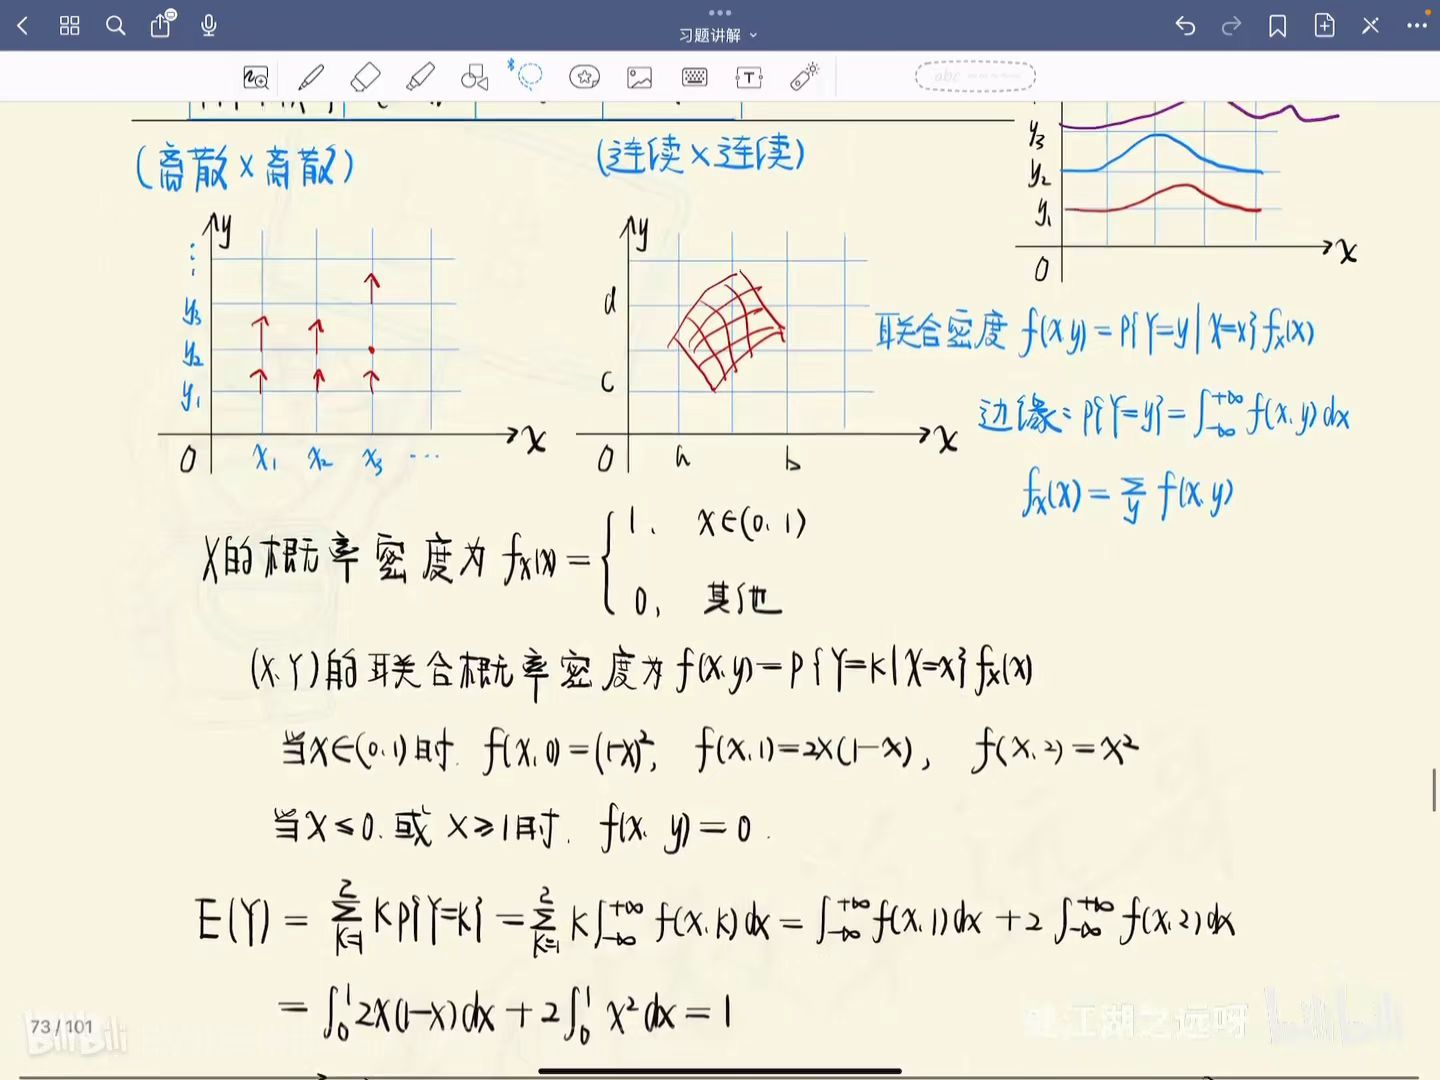 习题讲解
abc
(离散×离散)
(连续×连续)
y
y₃
y₂
y₁
0
x₁ x₂ x₃ ...
x
y
d
c
0
a
b
x
y₃
y₂
y₁
0
x
联合密度 f(x,y)=P{Y=y|X=x}fₓ(x)
边缘: P{Y=y}=∫_{-∞}^{+∞} f(x,y)dx
fₓ(x)=∑_y f(x,y)
X的概率密度为 fₓ(x)={1, x∈(0,1)
0, 其他
(X,Y)的联合概率密度为 f(x,y)=P{Y=k|X=x}fₓ(x)
当x∈(0,1)时. f(x,0)=(1-x)², f(x,1)=2x(1-x), f(x,2)=x²
当x≤0.或x≥1时. f(x,y)=0.
E(Y)=∑_{k=1}^{2} kP{Y=k}=∑_{k=1}^{2} k∫_{-∞}^{+∞} f(x,k)dx=∫_{-∞}^{+∞} f(x,1)dx+2∫_{-∞}^{+∞} f(x,2)dx
=∫_0^1 2x(1-x)dx+2∫_0^1 x²dx=1
73 / 101
bilibili
江湖之远呀 bilibili